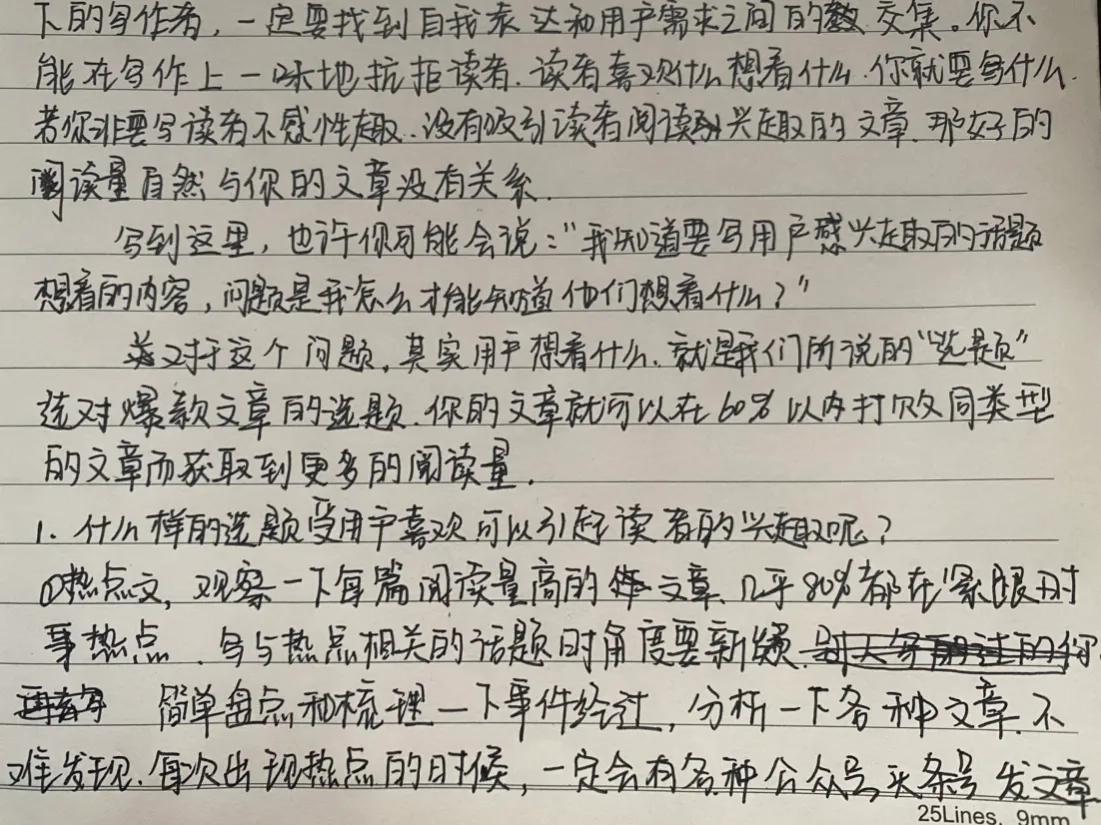 下的写作者，一定要找到自我表达和用户需求之间的交集。你不
能在写作上一味地抗拒读者.读者喜欢什么想看什么.你就要写什么.
若你非要写读者不感性趣.没有吸引读者阅读兴趣的文章.那好的
阅读量自然与你的文章没有关系.
写到这里，也许你可能会说："我知道要写用户感兴趣的话题
想看的内容，问题是我怎么才能知道他们想看什么？"
对于这个问题.其实用户想看什么.就是我们所说的"选题"
选对爆款文章的选题.你的文章就可以在60%以内打败同类型
的文章而获取到更多的阅读量.
1.什么样的选题受用户喜欢可以引起读者的兴趣呢？
①热点文，观察一下每篇阅读量高的文章、几乎80%都在紧跟时
事热点.写与热点相关的话题时角度要新颖.
简单盘点和梳理一下事件经过，分析一下各种文章.不
难发现.每次出现热点的时候，一定会有各种公众号头条号发文章
25Lines, 9mm